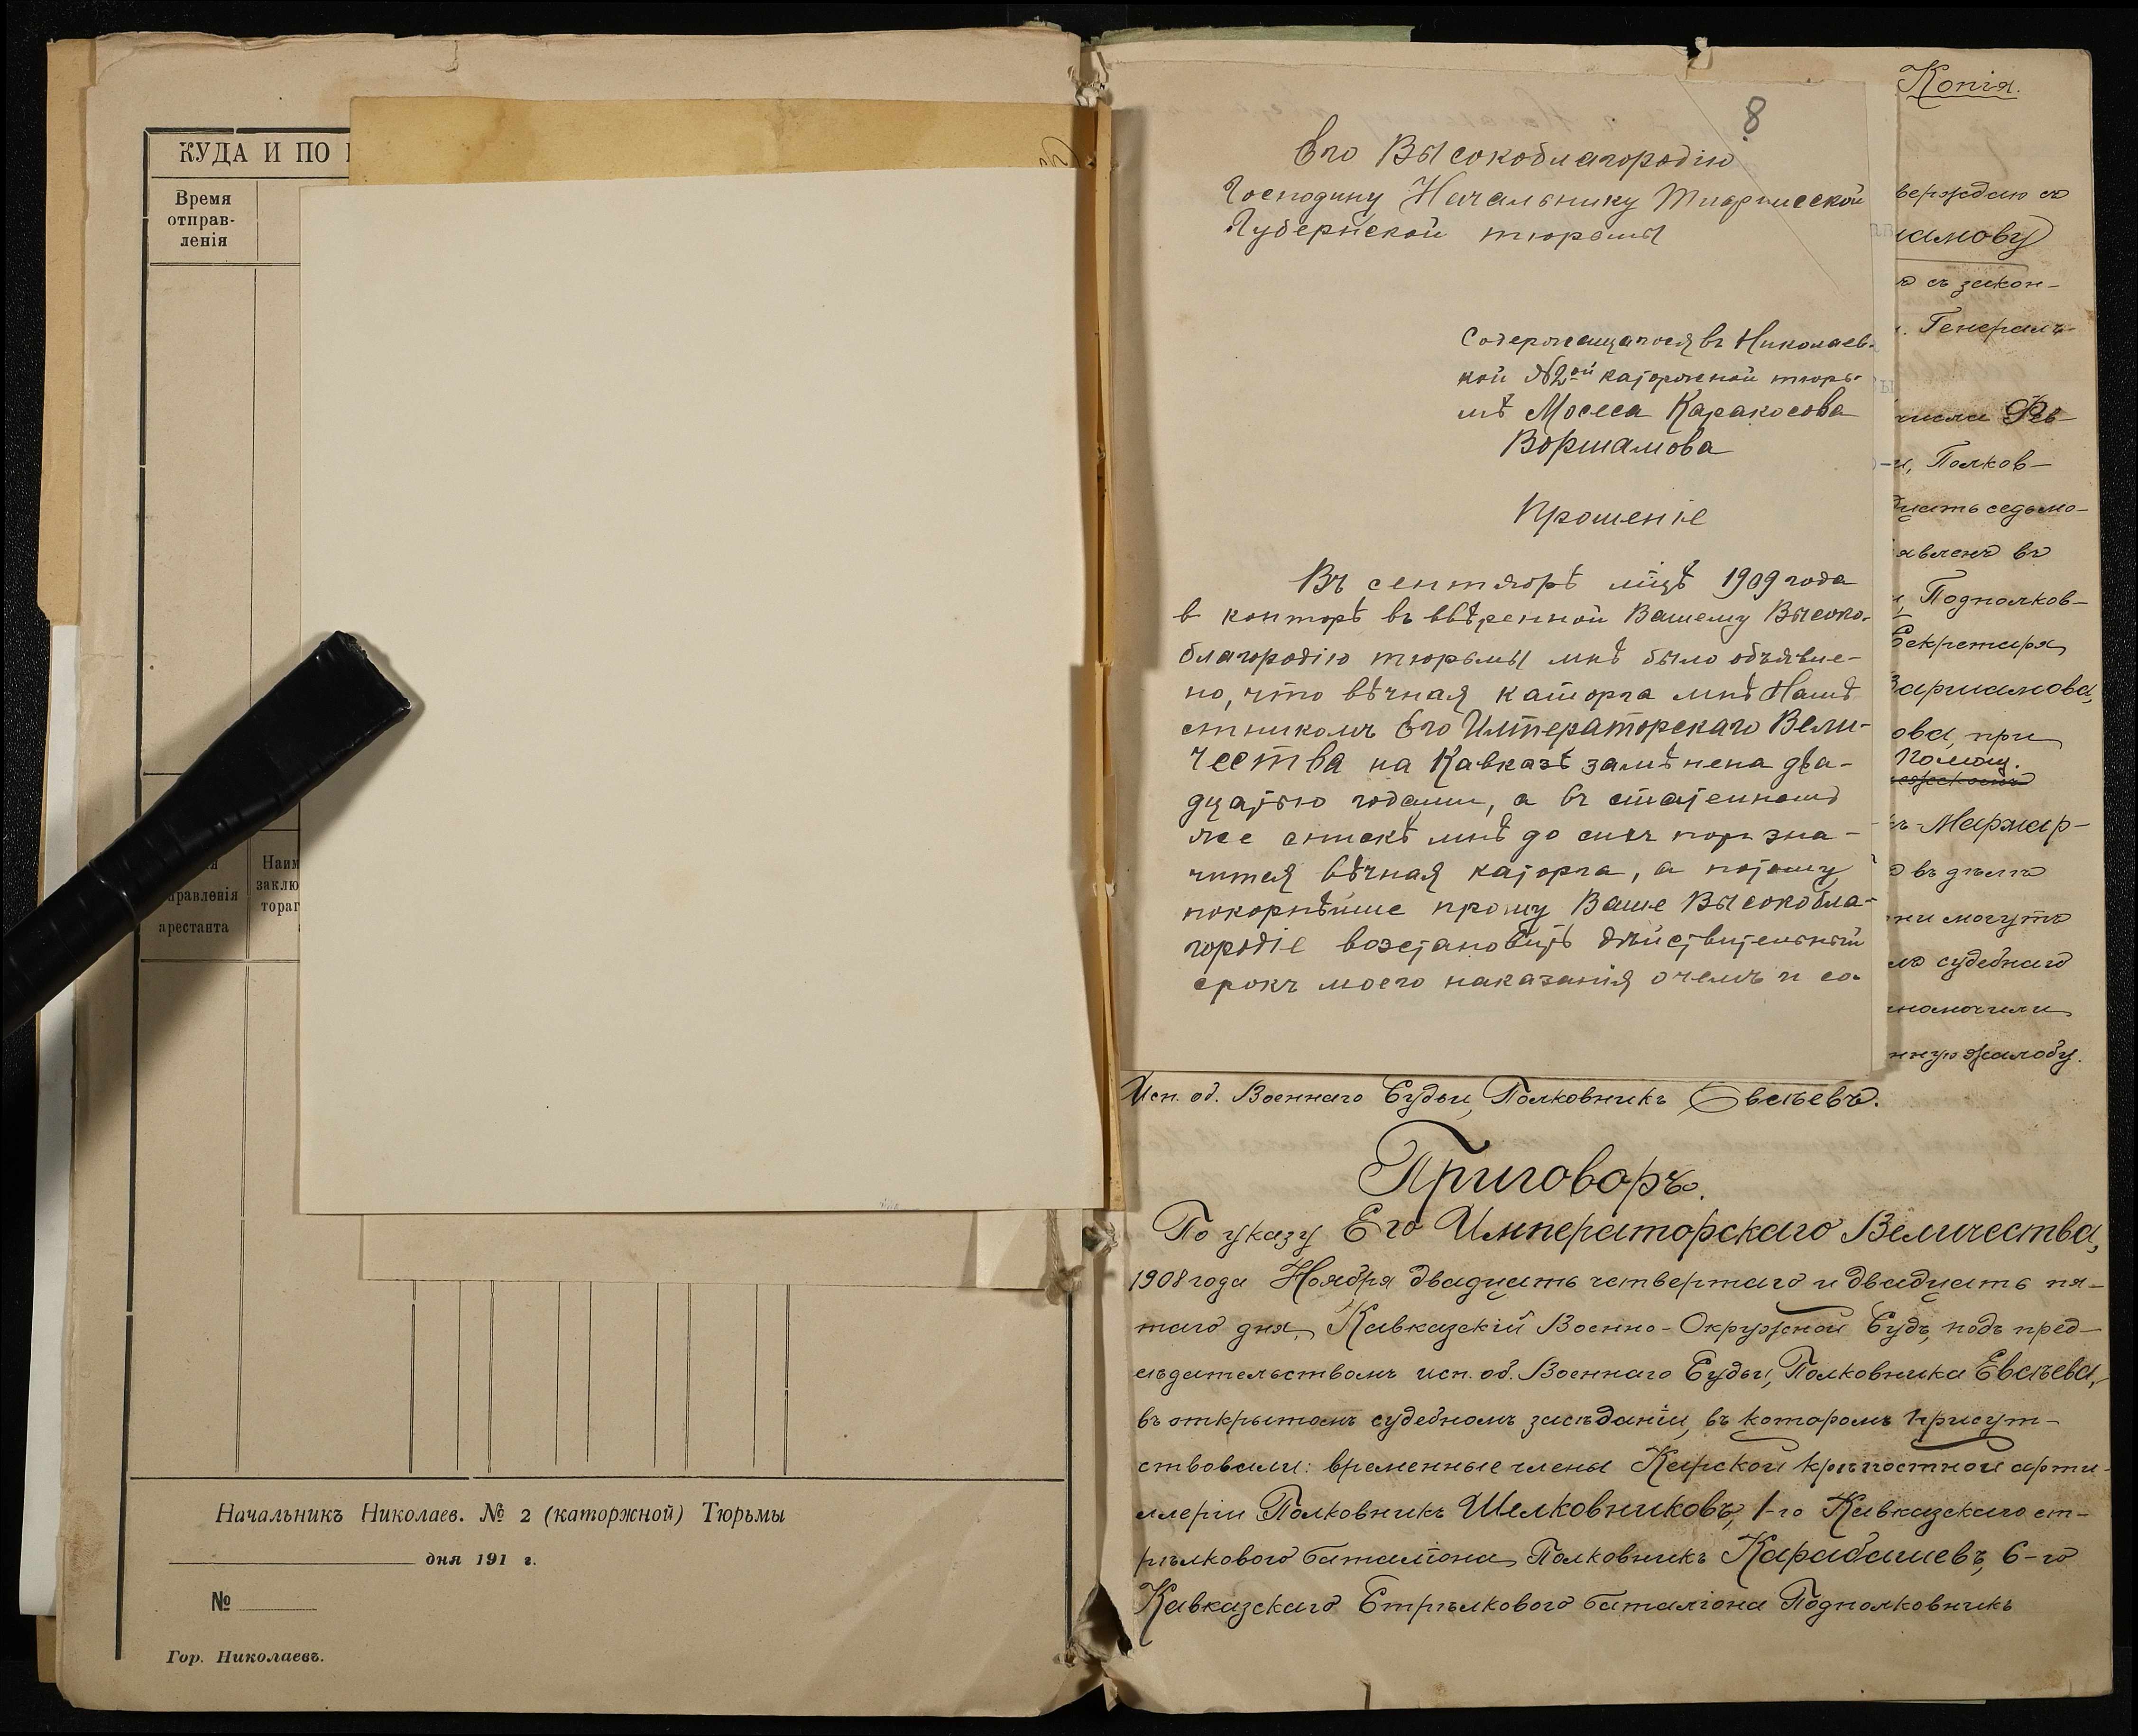 КУДА И ПО
Время
отправ-
ленія
Наим
заклю
торап
аправленія
арестанта
Начальникъ Николаев. № 2 (каторжной) Тюрьмы
дня 191 г.
№
Гор. Николаевъ.
8
Его Высокоблагородію
Господину Начальнику Тифлисской
Губернской тюрьмы
Содержащагося въ Николаев-
кой №2ой каторжной тюрь-
мѣ Мосеса Каракосова
Воршамова
Прошеніе
Въ сентябрѣ мѣцѣ 1909 года
в конторѣ въ ввѣренной Вашему Высоко-
благородію тюрьмы мнѣ было объявле-
но, что вѣчная каторга мнѣ Намѣ
стникомъ Его Императорскаго Вели-
чества на Кавказѣ замѣнена два-
дцатью годами, а въ статейномъ
же спискѣ мнѣ до сихъ поръ зна-
чится вѣчная каторга, а потому
покорнѣйше прошу Ваше Высокобла-
городіе возстановить дѣйствительный
срокъ моего наказанія о чемъ и со-
Копія.
верждаю съ
амову
о съ закон-
. Генералъ-
числа Фев-
и, Полков-
дцать седьмо-
явленъ въ
и, Подполков-
Секретаря
Варшамова,
ова, при
Помощ.
ъ Маркар-
о въ дѣлѣ
ни могутъ
ло судебнаго
нную жалобу.
Исп. об. Военнаго Судьи, Полковникъ Евсѣевъ.
Приговоръ.
По указу Его Императорскаго Величества,
1908 года Ноября двадцать четвертаго и двадцать пя-
таго дня, Кавказскій Военно-Окружной Судъ, подъ пред-
сѣдательствомъ исп. об. Военнаго Судьи, Полковника Евсѣева,
въ открытомъ судебномъ засѣданіи, въ которомъ присут-
ствовали: временные члены Карской крѣпостной арти-
ллеріи Полковникъ Шелковниковъ, 1-го Кавказскаго ст-
рѣлковаго баталіона Полковникъ Карабашевъ, 6-го
Кавказскаго Стрѣлковаго баталіона Подполковникъ